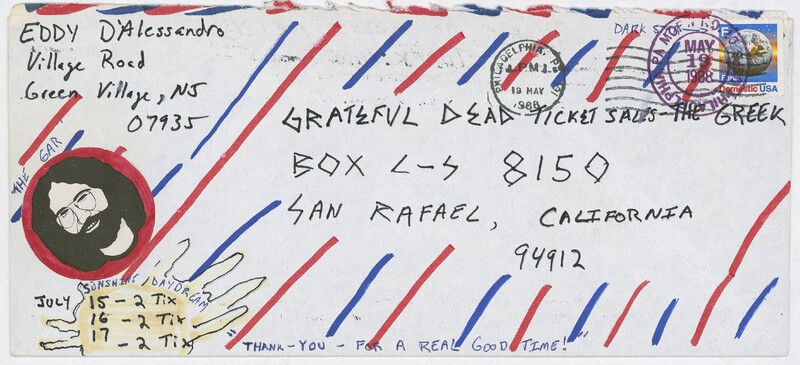 EDDY D'Alessandro
Village Road
Green Village, NJ
07935
DARK S
PHILADELPHIA, PA
PM
19 MAY
1988
MAY
19
1988
PHILADELPHIA PA
F
Earth
Domestic USA
GRATEFUL DEAD TICKET SALES-THE GREEK
BOX C-S 8150
SAN RAFAEL, CALIFORNIA
94912
THE GAR
SUNSHINE DAYDREAM
JULY 15-2 Tix
16-2 Tix
17-2 Tix
"THANK-YOU-FOR A REAL GOOD TIME!"